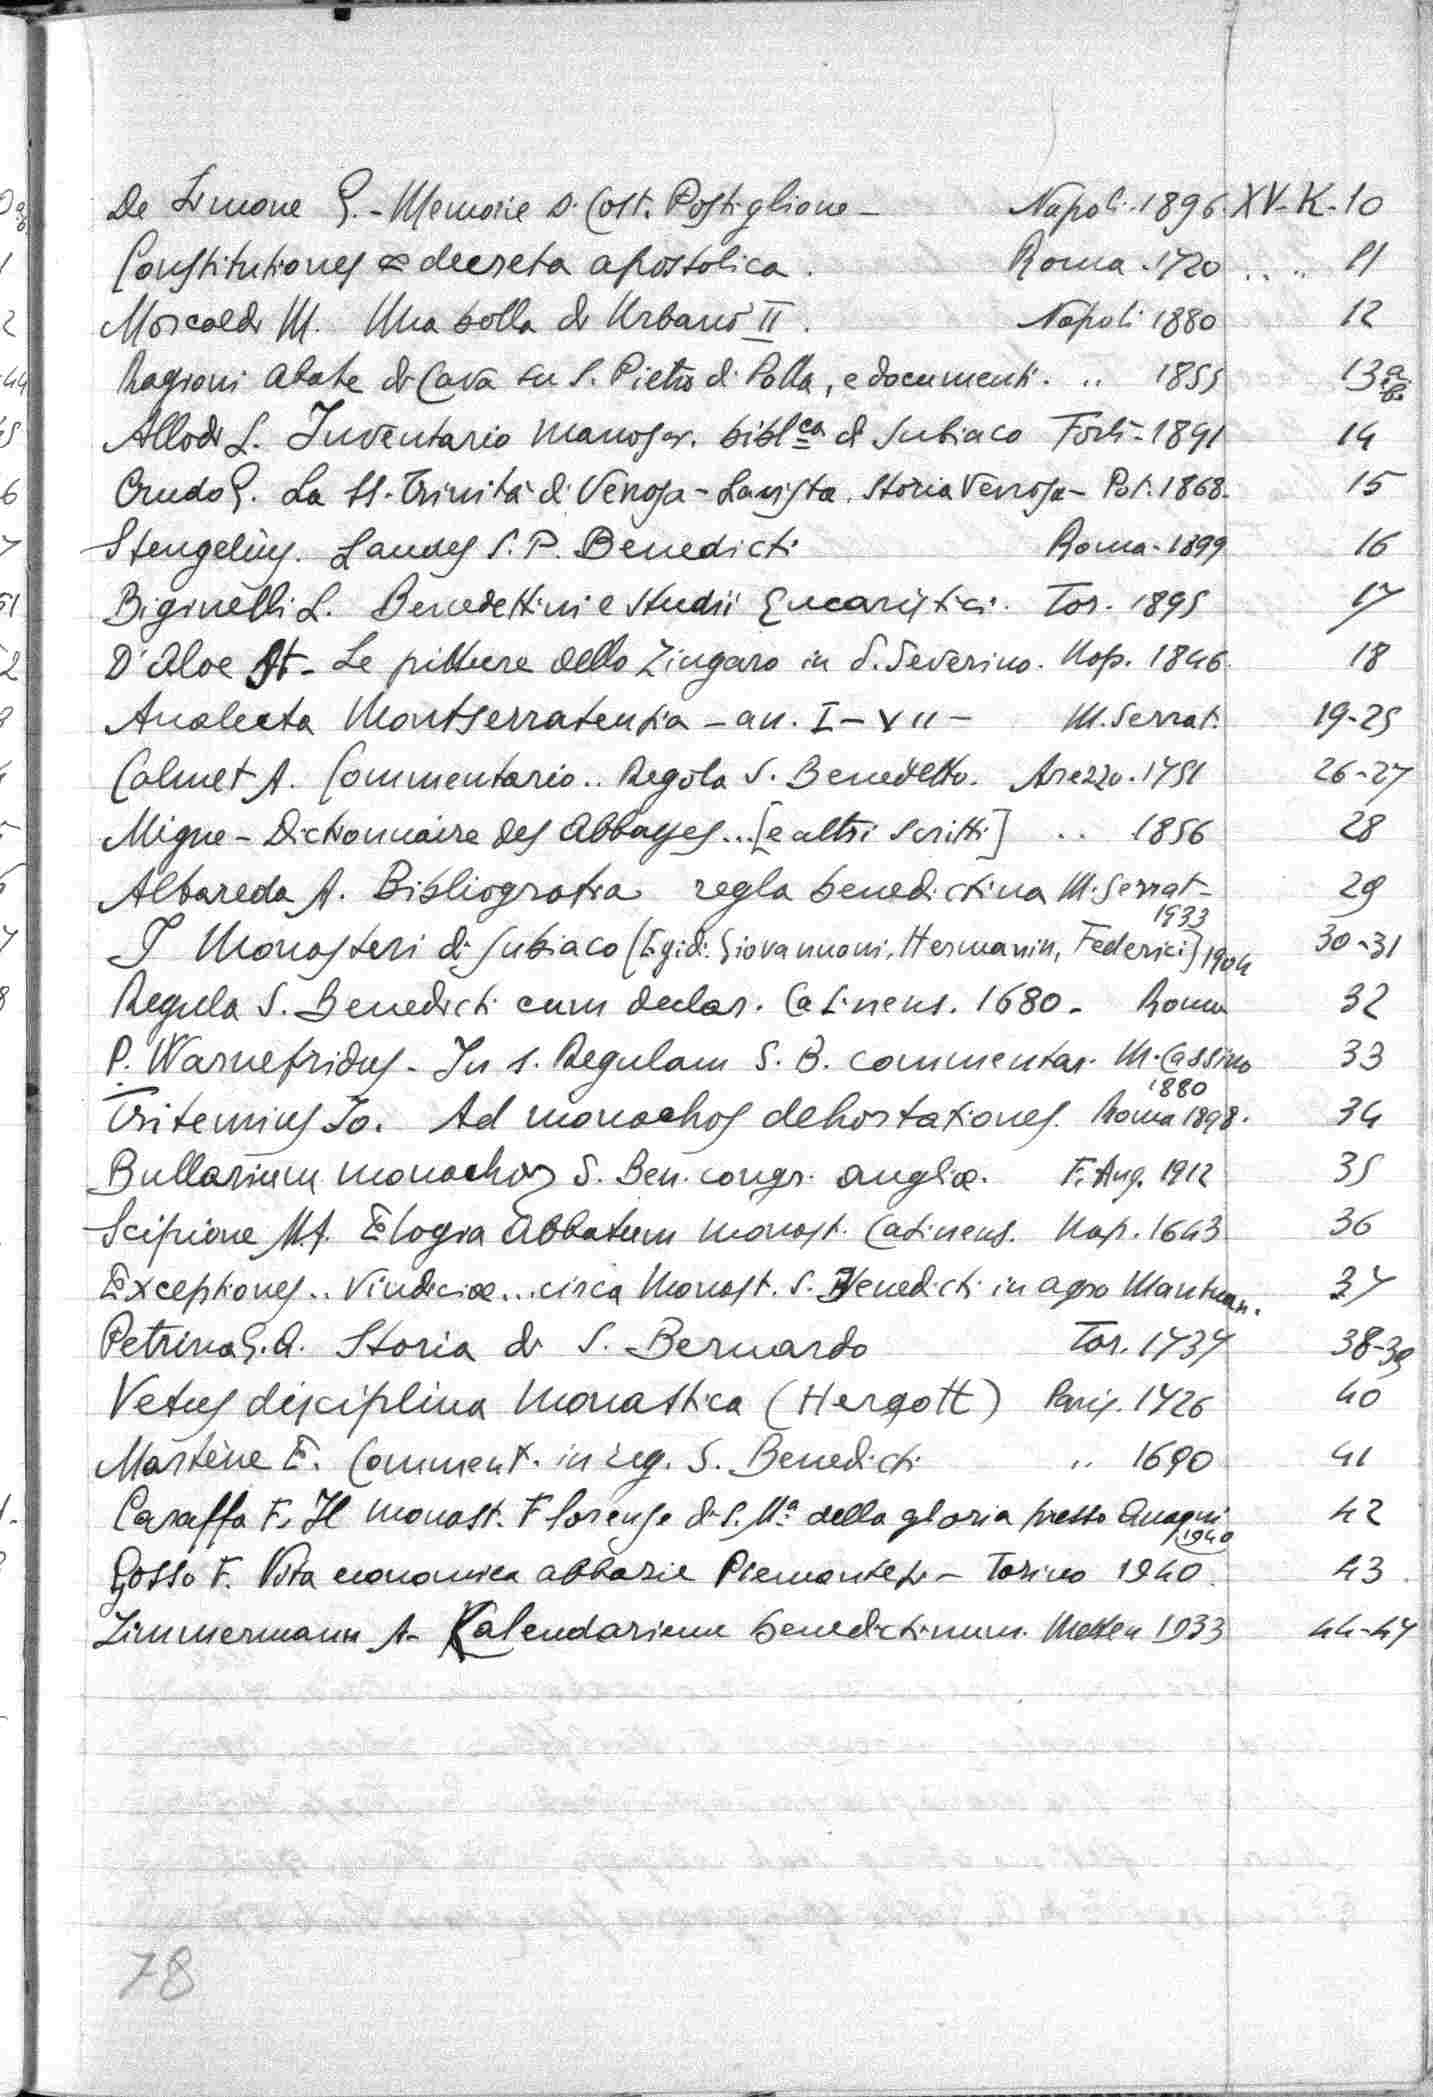 De Simone G. - Memorie D. Cost. Postiglione - Napoli. 1896. XV-K-10
Constitutiones & decreta apostolica. Roma. 1720 .. .. 11
Morcaldi M. Una bolla di Urbano II. Napoli 1880 12
Ragioni Abate di Cava su S. Pietro di Polla, e documenti. .. 1855 13 a.b.
Allodi L. Inventario manoscr. bibl.ca di Subiaco Forlì - 1891 14
Crudo G. La SS. Trinità di Venosa - Lavista. Storia Venosa - Pot. 1868. 15
Stengelius. Laudes S. P. Benedicti Roma. 1899 16
Biginelli L. Benedettini e Studii Eucaristici. Tor. 1895 17
D'Aloe St. - Le pitture dello Zingaro in S. Severino. Nap. 1846. 18
Analecta Montserratensia - an. I - VII - M. Serrat. 19-25
Calmet A. Commentario .. Regola S. Benedetto. Arezzo. 1751 26-27
Migne - Dictionnaire des Abbayes... [e altri scritti] .. 1856 28
Albareda A. Bibliografia regla benedictina M. Serrat - 1933 29
I Monasteri di Subiaco [Egidi. Giovannoni, Hermanin, Federici] 1904 30-31
Regula S. Benedicti cum declar. Casinens. 1680 - Roma 32
P. Warnefridus - In s. Regulam S. B. commentar. M. Cassino 1880 33
Tritemius Jo. Ad monachos dehortationes. Roma 1898. 34
Bullarium monachor S. Ben. congr. angliæ. F. Aug. 1912 35
Scipione M.A. Elogia Abbatum monast. Casinens. Nap. 1643 36
Exceptiones .. Vindiciæ ... circa Monast. S. Benedicti in agro Mantuan. 37
Petrina G. A. Storia di S. Bernardo Tor. 1737 38-39
Vetus disciplina Monastica (Hergott) Paris. 1726 40
Martène E. Comment. in reg. S. Benedicti .. 1690 41
Caraffa F. Il monast. Florense di S. M.a della gloria presso Anagni 1940 42
Gosso F. Vita economica abbazie Piemontesi - Torino 1940. 43.
Zimmermann A - Kalendarium benedictinum. Metten 1933 44-47
78